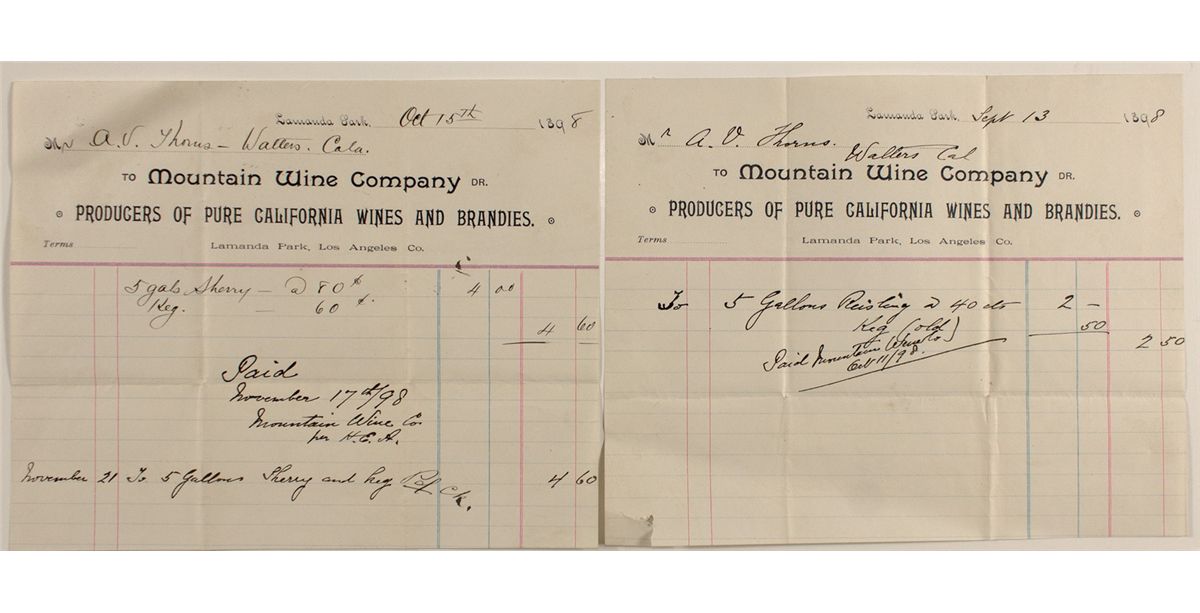 Lamanda Park, Oct 15TH 1898
Mr A. V. Thorns - Walters. Cala.
TO Mountain Wine Company DR.
PRODUCERS OF PURE CALIFORNIA WINES AND BRANDIES.
Terms Lamanda Park, Los Angeles Co.
5 gals Sherry - @ 80¢ 4 00
Keg. 60¢.
4 60
Paid
November 17th/98
Mountain Wine Co.
per H.E.A.
November 21 To 5 Gallons Sherry and keg Pd ck. 4 60
Lamanda Park, Sept 13 1898
Mr A. V. Thorns.
Walters Cal
TO Mountain Wine Company DR.
PRODUCERS OF PURE CALIFORNIA WINES AND BRANDIES.
Terms Lamanda Park, Los Angeles Co.
To 5 Gallons Reisling @ 40 cts 2 -
Keg (old) 50
2 50
Paid Mountain Wine Co
Oct 11/98.